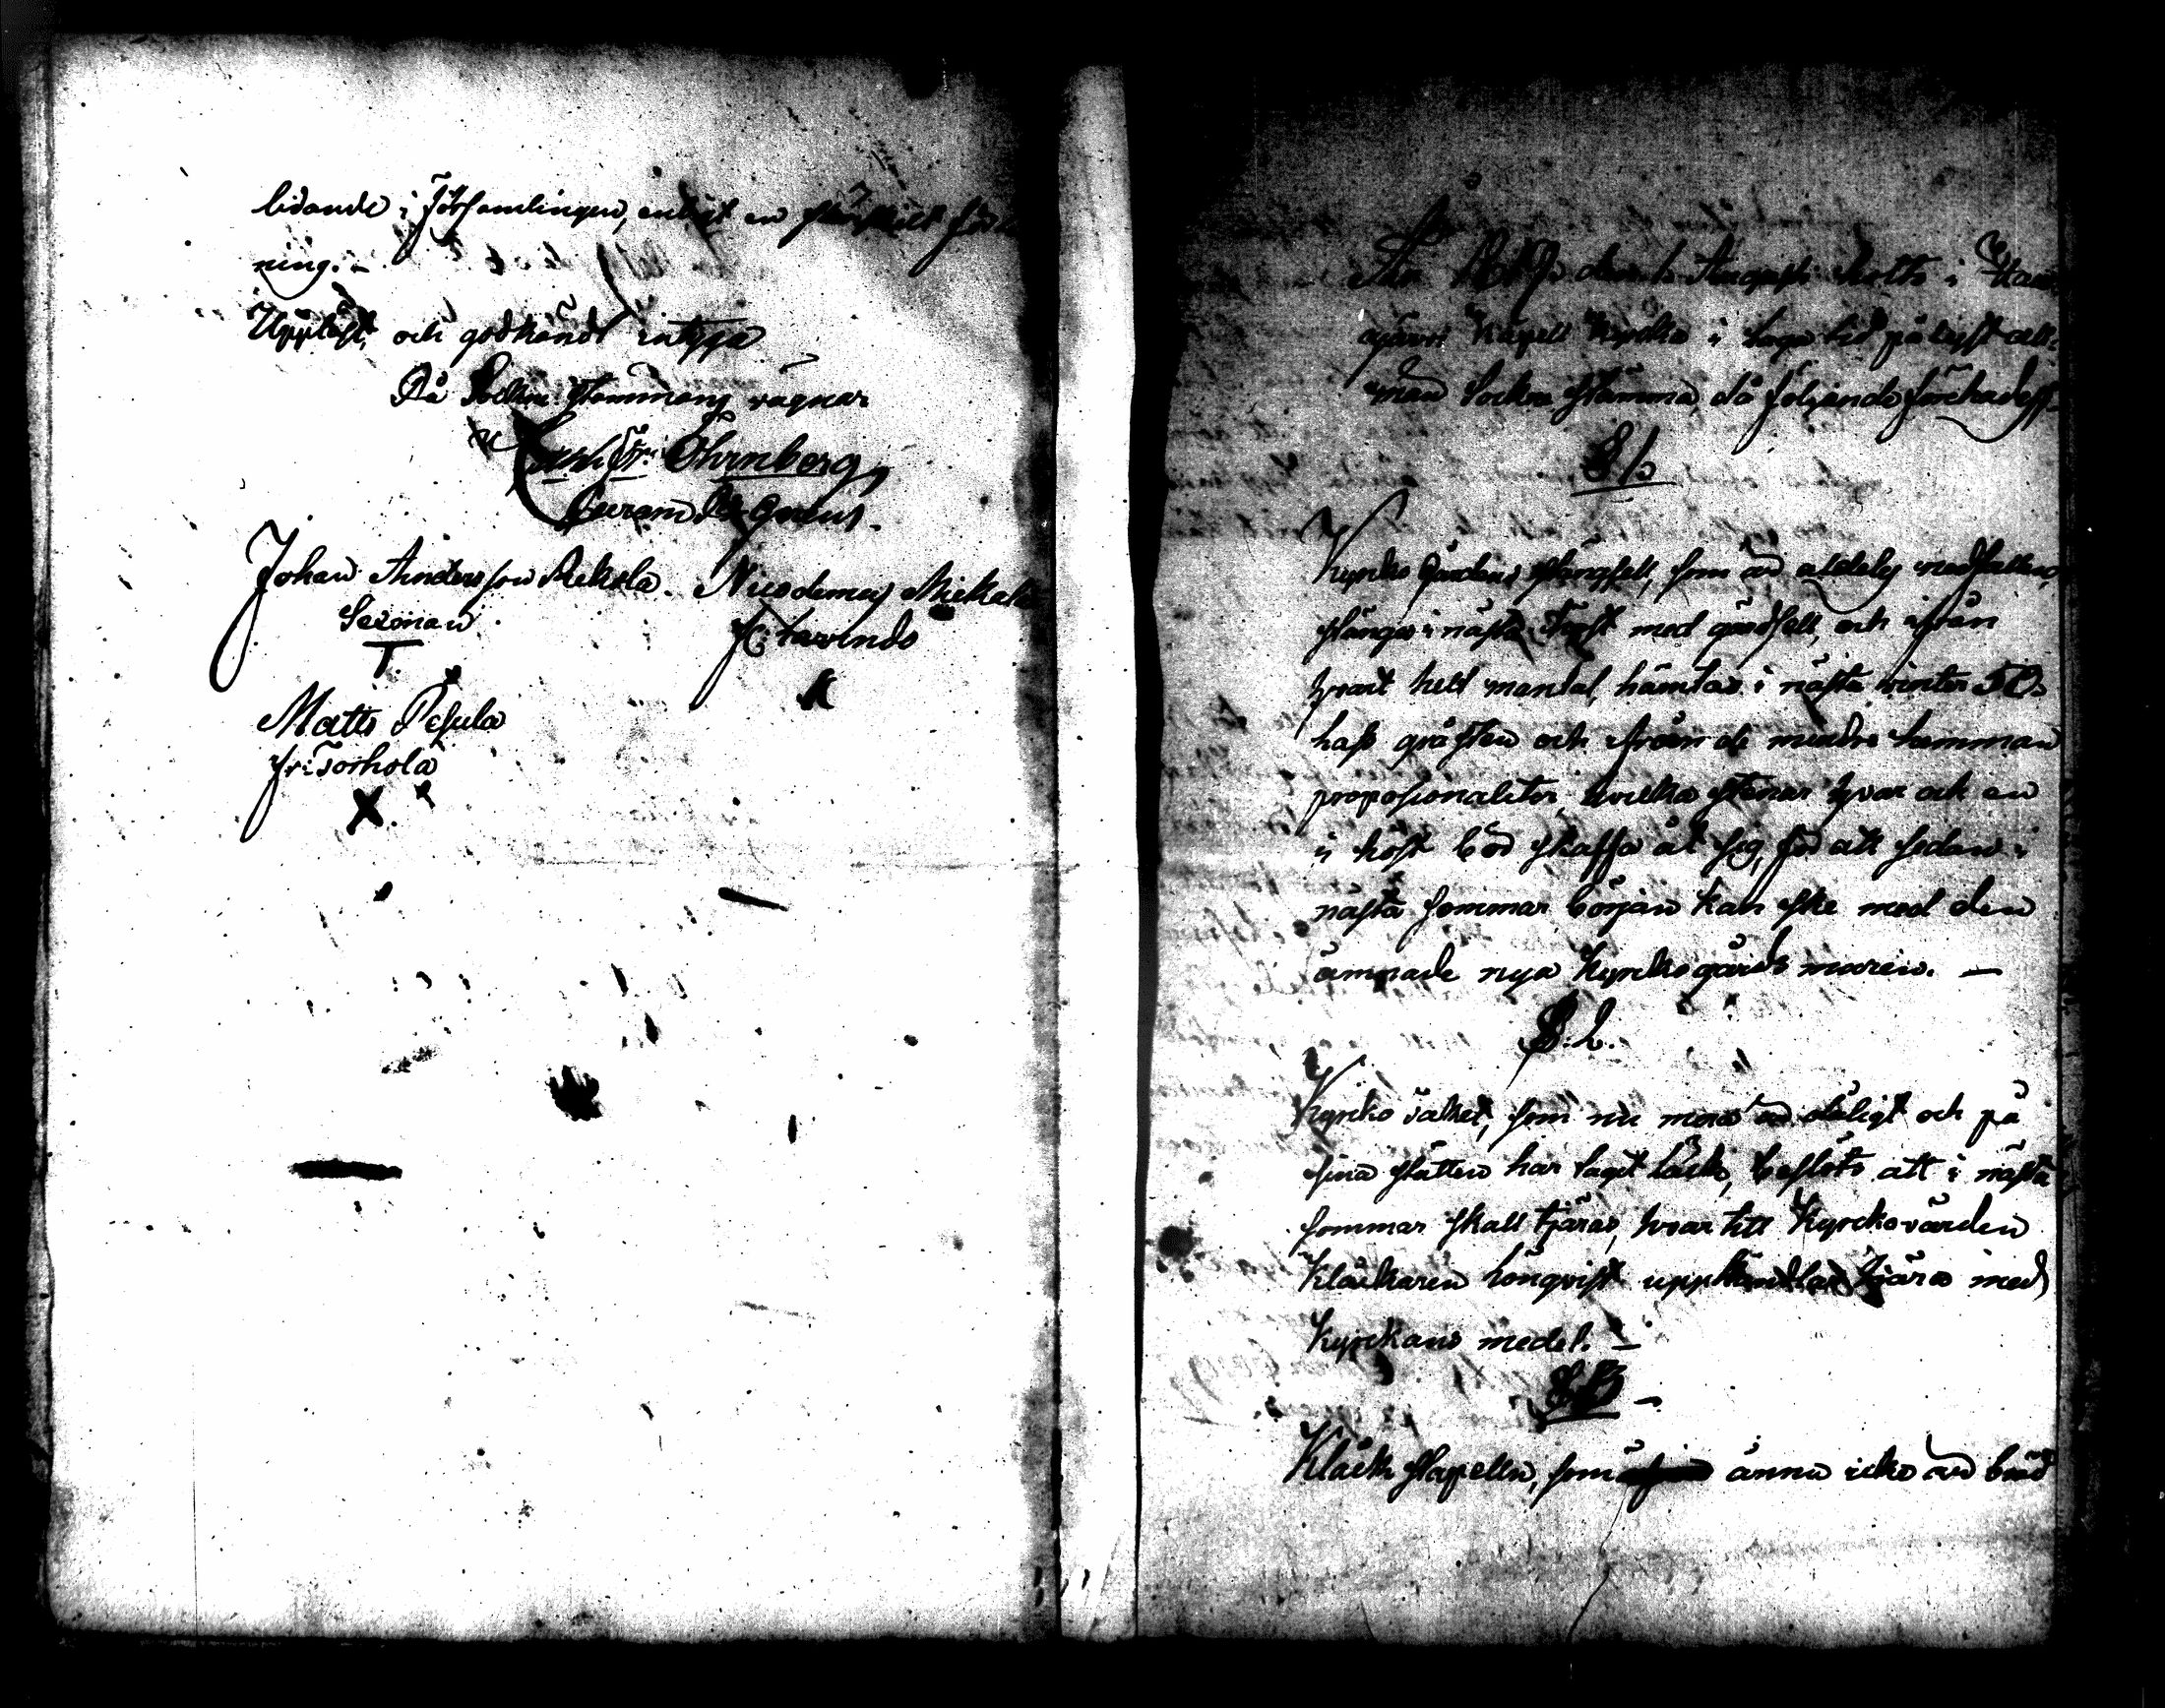 lidande i Församlingen, enligt en särskilt
ning. –
Uppläst, och godkändt intyga
På Sockne stämmans vägnar
Öhrnberg
Johan Andersson Rekola. Nicodemus
Sexman
Matts Pesula
fr: Torhola
X.
den 1. Augusti hölts i
Kapell Kyrka i laga tid pålyst all-
män Sockne stämma, då följande förehades
§ 1.
Kyrko Gårdens stängsel, som är aldeles nedfallen,
stänges i nästa höst med gärdsell, och ifrån
hvart helt mantal, hämtas i nästa winter 50.
lass gråsten och från de mindre hemman
proposionaliter, hvilka stenar hvar och en
i höst bör skaffa åt sig, för att sedan i
nästa sommar början kan ske med den
ämnade nya Kyrkogårds muren. –
§. 2.
Kyrko taket, som nu mera är dåligt och på
sina ställen har tagit läcka, beslöts att i nästa
sommar skall tjäras, hvar till Kyrckovärden
Klåckaren Lönqvist upphandlar tjära med
Kyrckans medel. –
§ 3 –
Klåck stapeln, som ännu icke är bräd